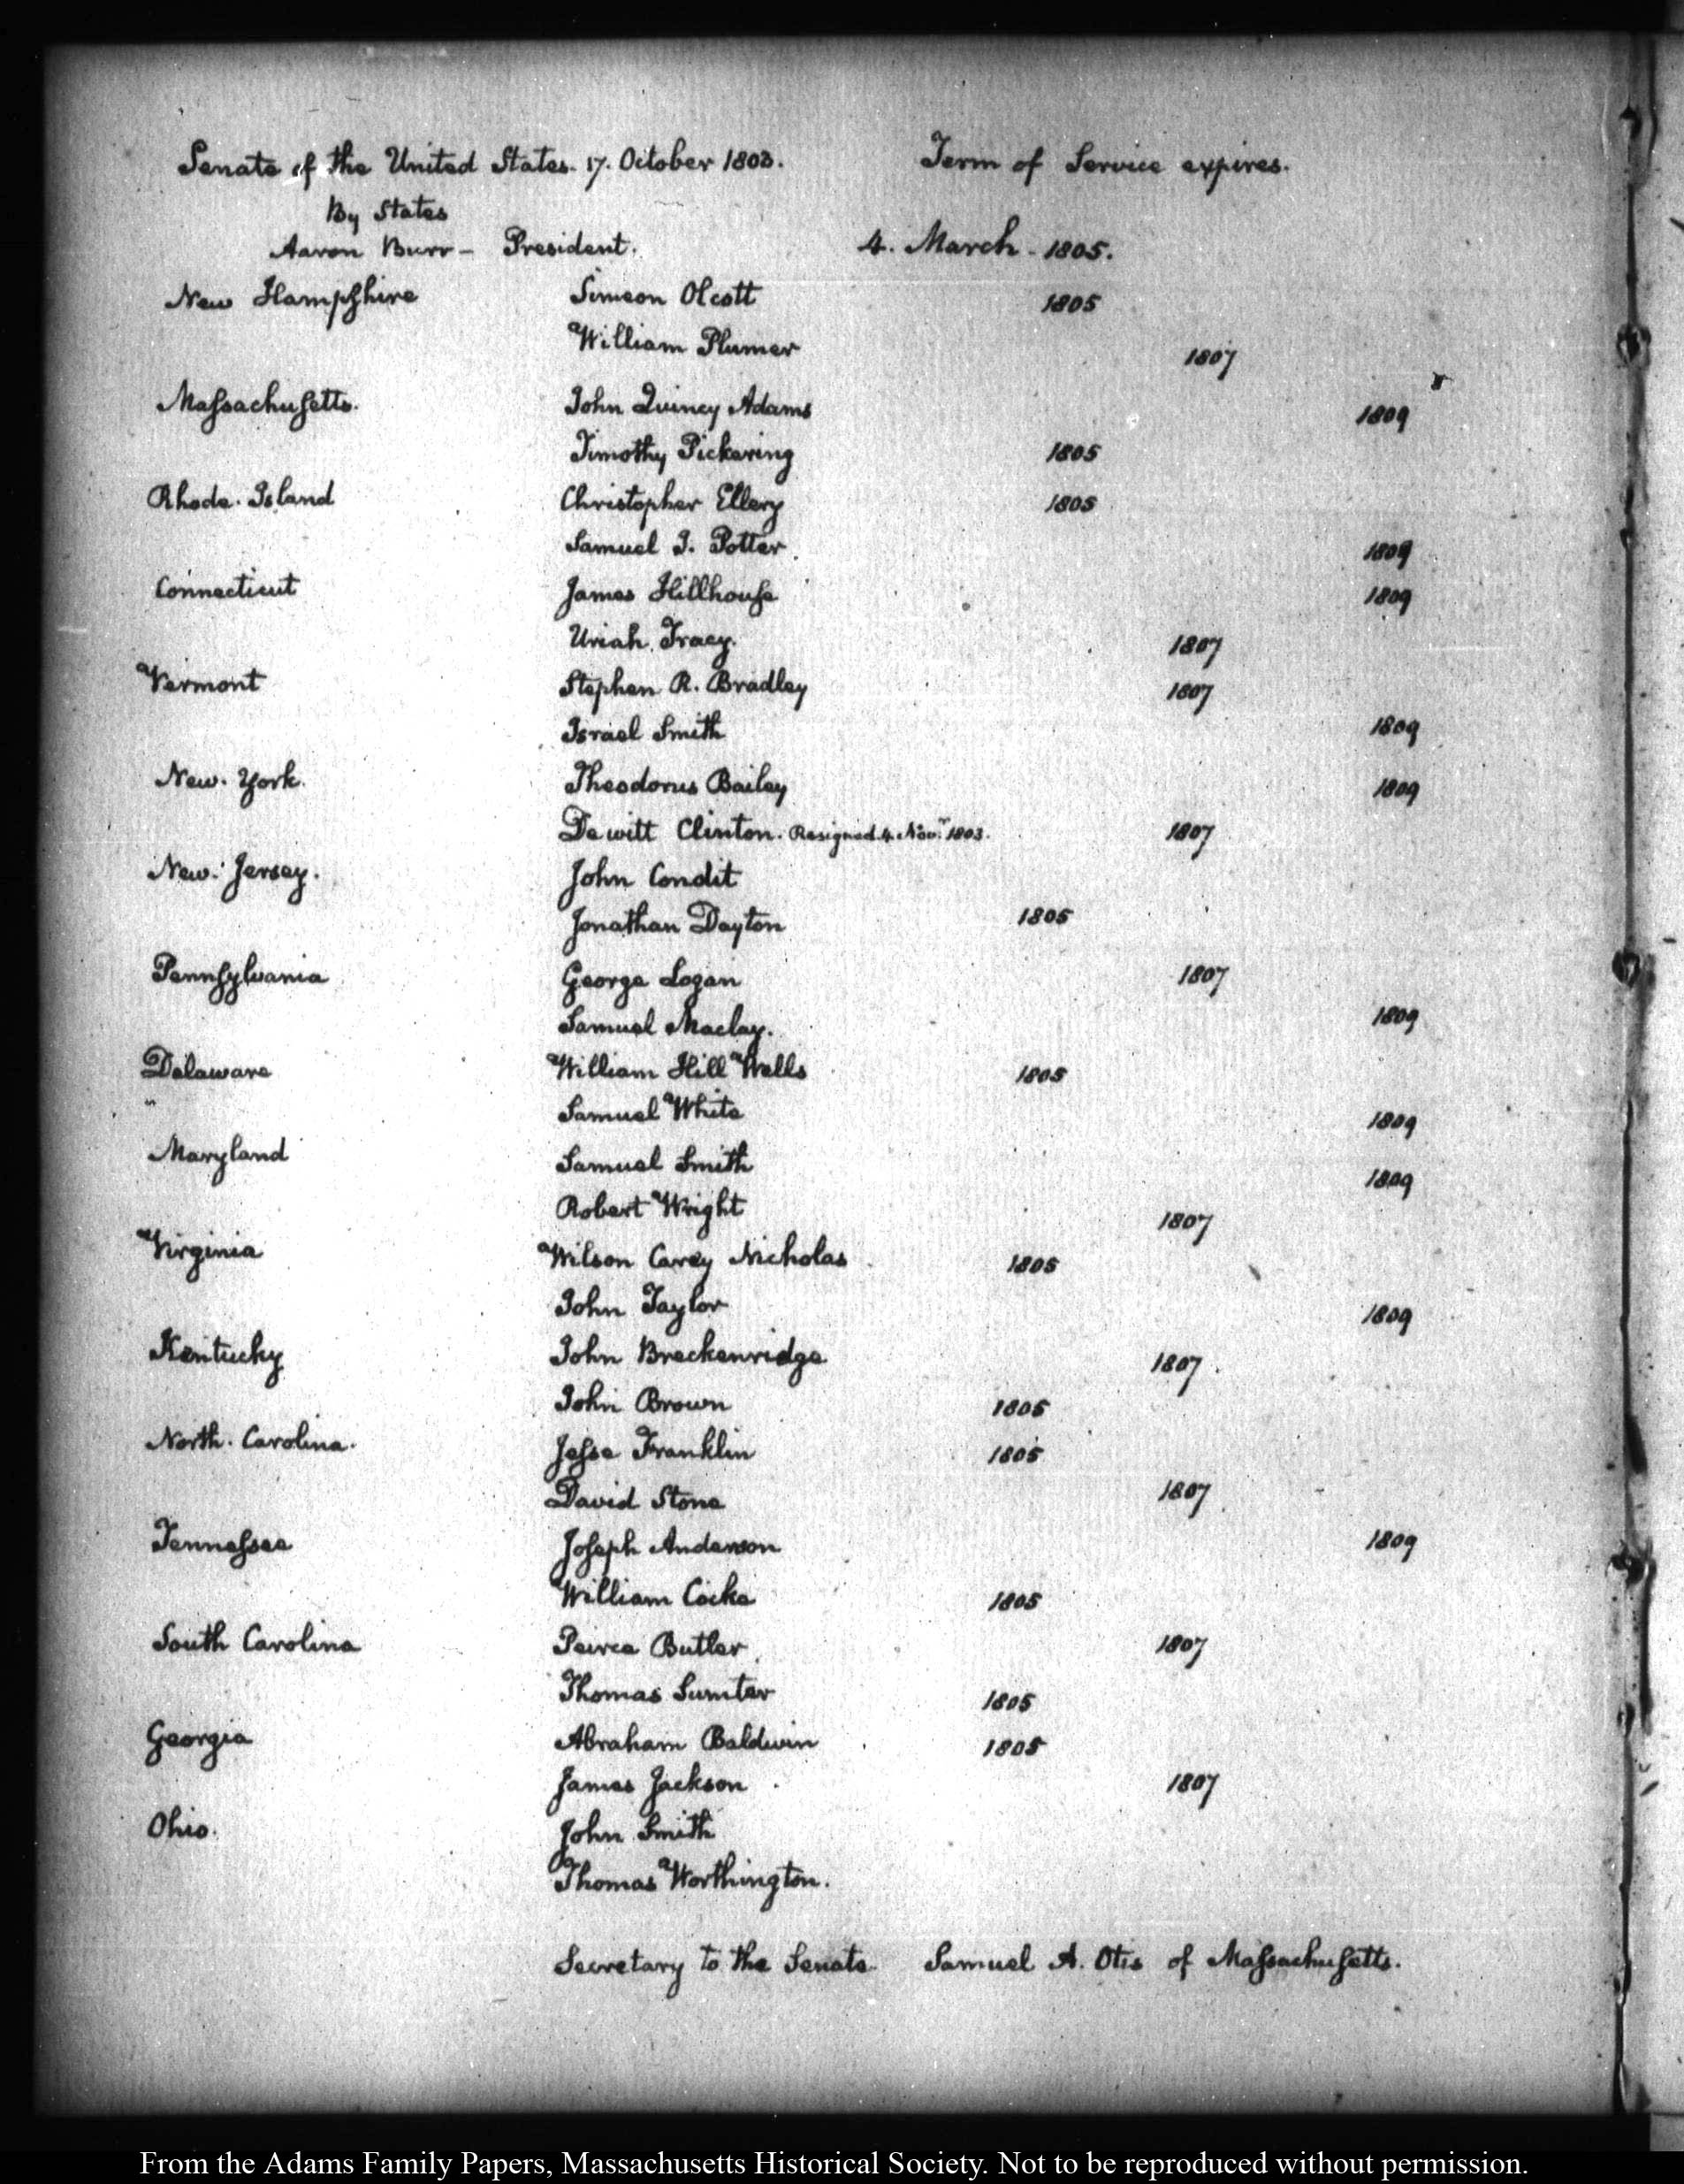 Senate of the United States. 17. October 1803. Term of Service expires.
By States
Aaron Burr – President. 4. March - 1805.
New Hampshire Simeon Olcott 1805
William Plumer 1807
Massachusetts. John Quincy Adams 1809
Timothy Pickering 1805
Rhode. Island Christopher Ellery 1805
Samuel J. Potter. 1809
Connecticut James Hillhouse 1809
Uriah Tracy. 1807
Vermont Stephen R. Bradley 1807
Israel Smith 1809
New. York. Theodorus Bailey 1809
Dewitt Clinton. Resigned. 4. Novr. 1803. 1807
New. Jersey. John Condit
Jonathan Dayton 1805
Pennsylvania George Logan 1807
Samuel Maclay. 1809
Delaware William Hill Wells 1805
" Samuel White 1809
Maryland Samuel Smith 1809
Robert Wright 1807
Virginia Wilson Carey Nicholas 1805
John Taylor 1809
Kentucky John Breckenridge 1807.
John Brown 1805
North. Carolina. Jesse Franklin 1805
David Stone 1807
Tennessee Joseph Anderson 1809
William Cocke 1805
South Carolina Peirce Butler 1807
Thomas Sumter 1805
Georgia Abraham Baldwin 1805
James Jackson 1807
Ohio. John Smith
Thomas Worthington.
Secretary to the Senate. Samuel A. Otis of Massachusetts.
From the Adams Family Papers, Massachusetts Historical Society. Not to be reproduced without permission.